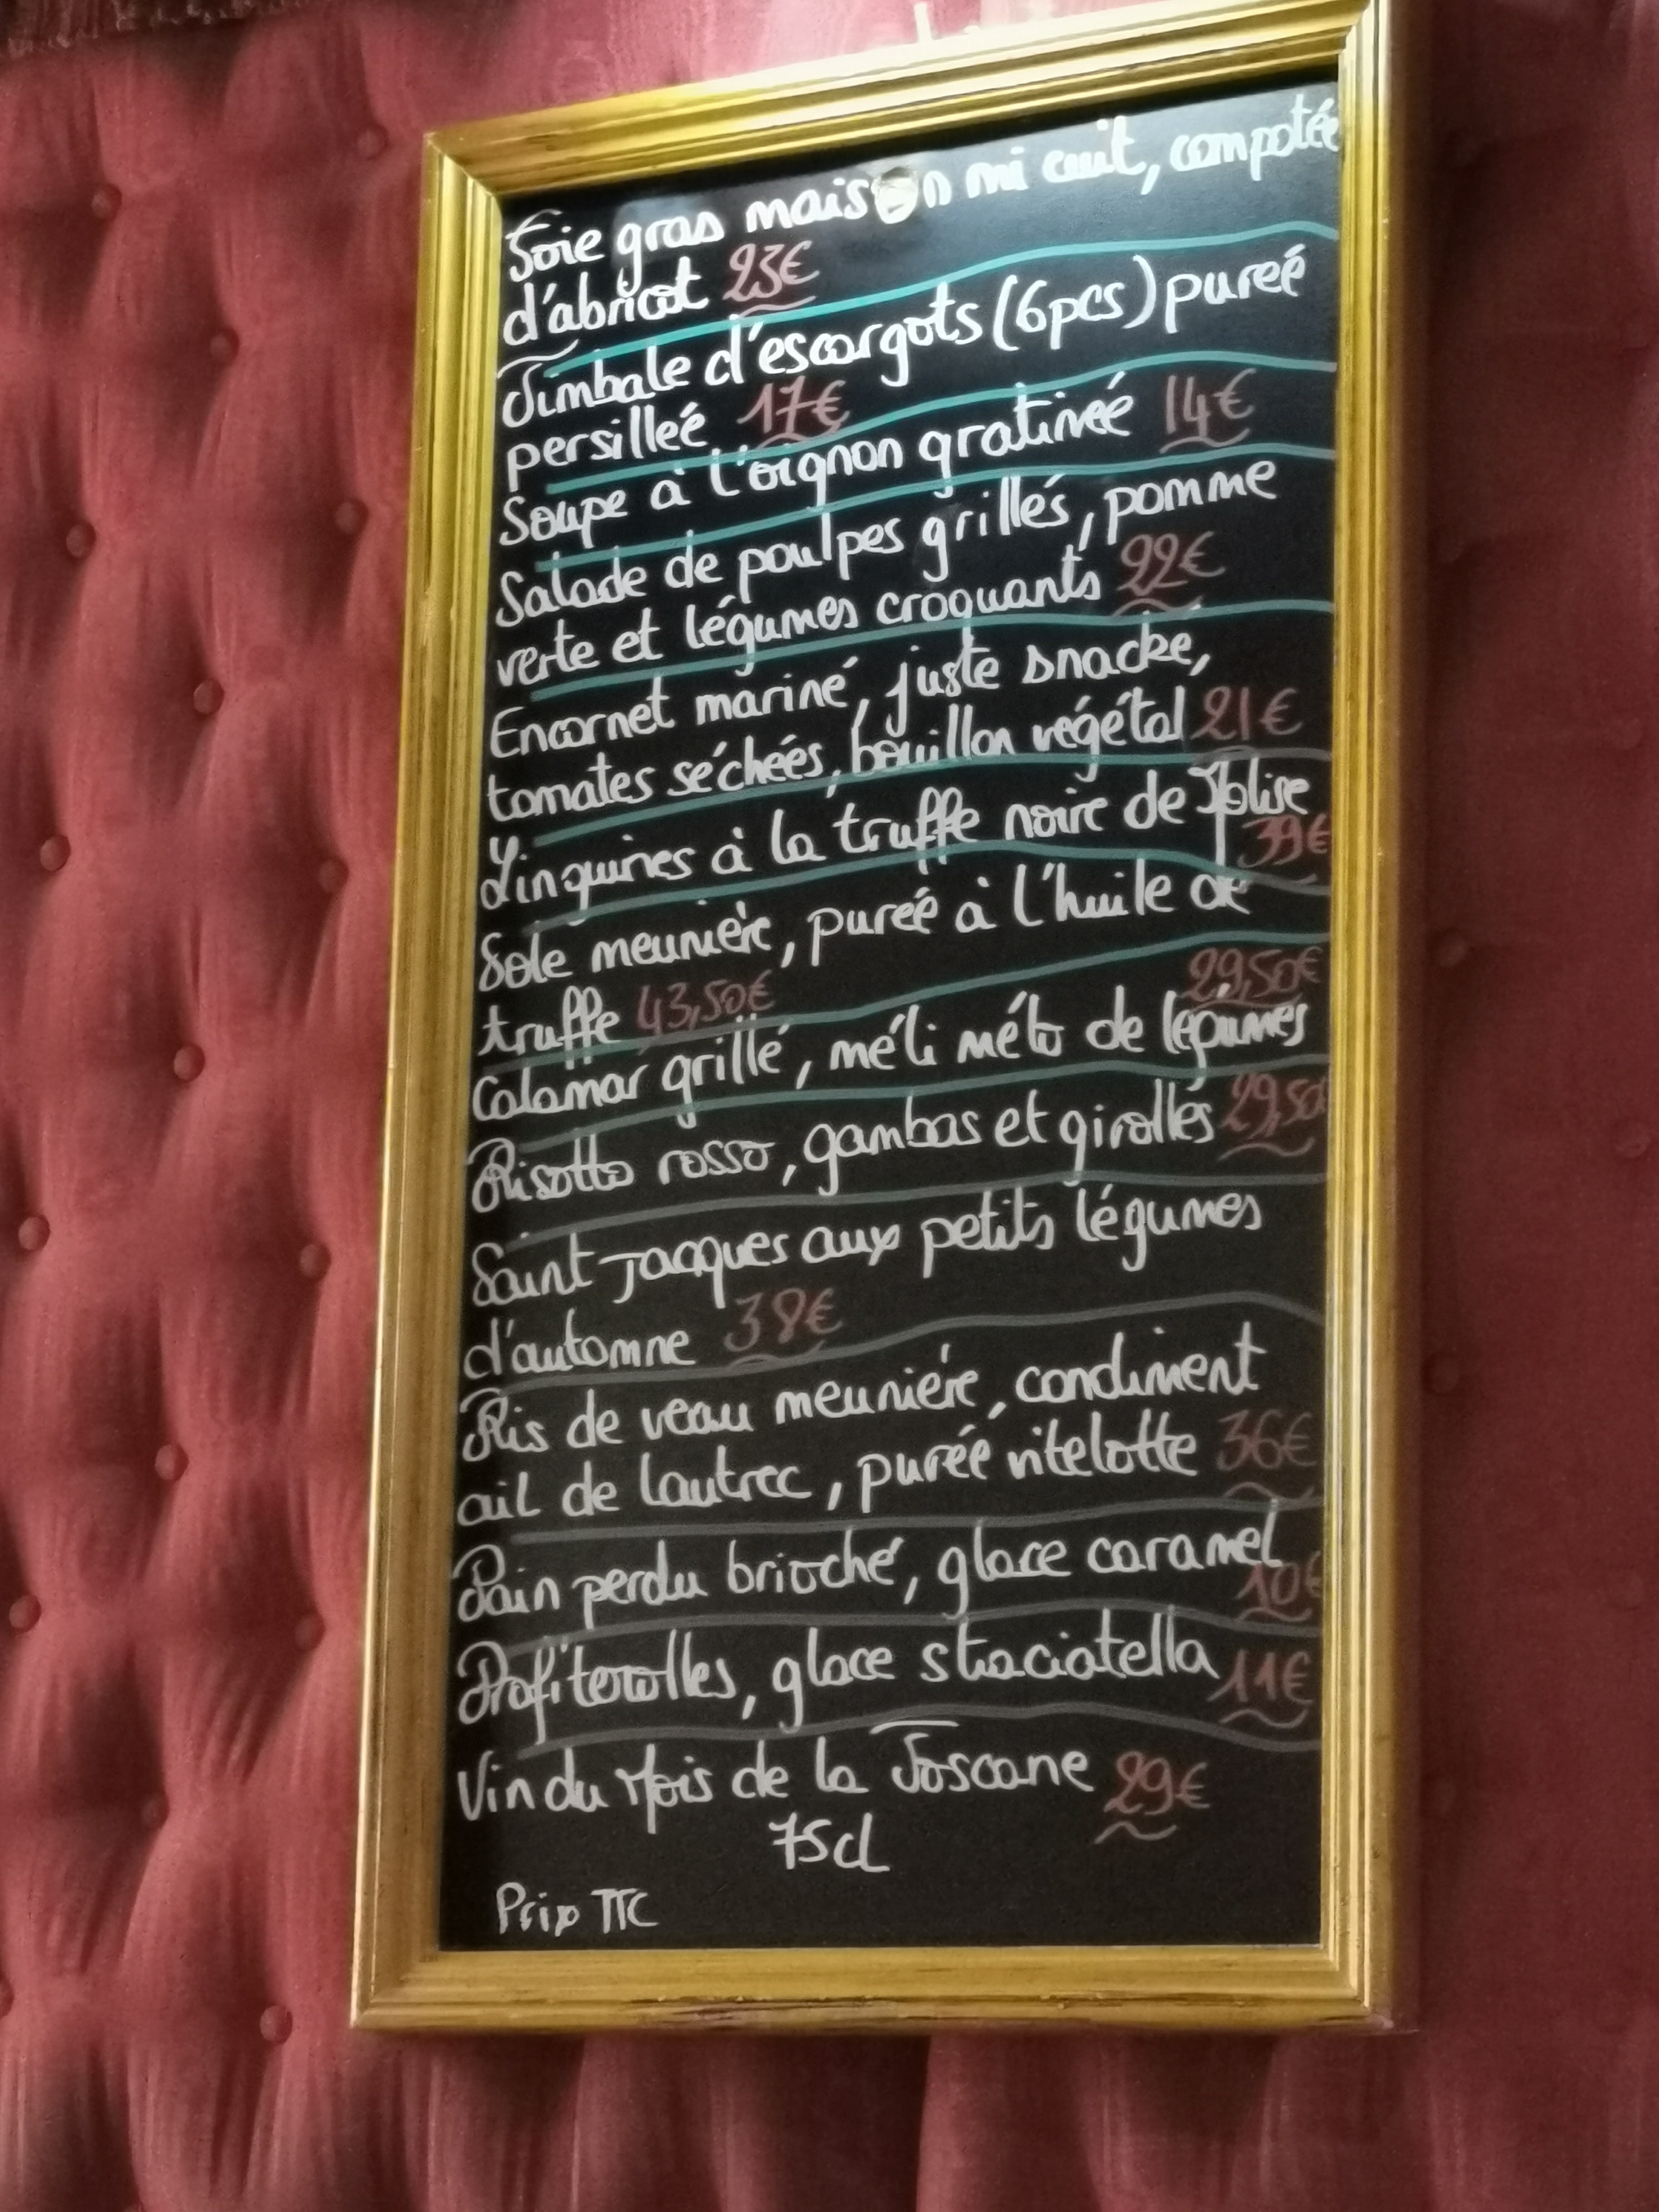 Foie gras maison mi cuit, compotée
d'abricot 23€
Timbale d'escargots (6pcs) pureé
persilleé 17€
Soupe à l'oignon gratineé 14€
Salade de poulpes grillés, pomme
verte et légumes croquants 22€
Encornet mariné, juste snacke,
tomates séchées, bouillon végétal 21€
Linguines à la truffe noire de
39€
Sole meunière, pureé à l'huile de
truffe 43,50€
29,50€
Calamar grillé, méli mélo de légumes
Risotto rosso, gambas et girolles 29,50
Saint-Jacques aux petits légumes
d'automne 38€
Ris de veau meunière, condiment
ail de Lautrec, purée vitelotte 36€
Pain perdu brioché, glace caramel
10€
Profiterolles, glace straciatella 11€
Vin du Mois de la Toscane 29€
75cl
Prix TTC